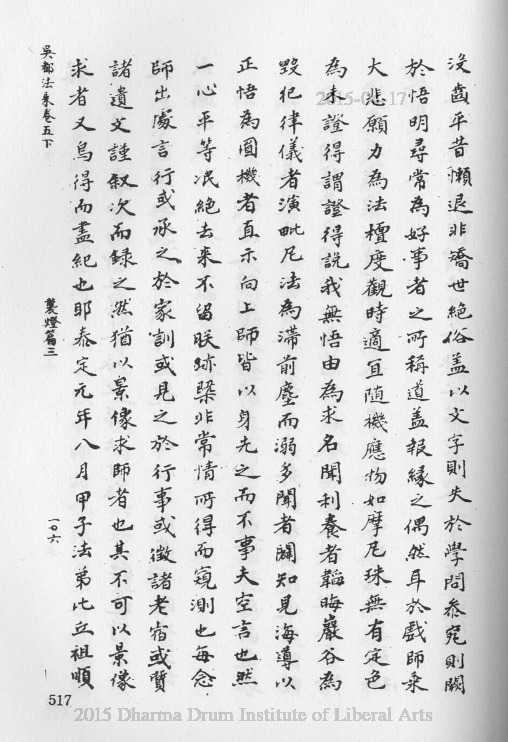 沒齒平昔懶退非矯世絕俗盖以文字則失於學問叅究則闕
於悟明尋常為好事者之所稱道盖報緣之偶然耳於戲師乘
大悲願力為法檀度觀時適宜随機應物如摩尼珠無有定色
為未證得謂證得説我無悟由為求名聞利養者韜晦巖谷為
毀犯律儀者演毗尼法為滯前塵而溺多聞者闢知見海導以
正悟為圓機者直示向上師皆以身先之而不事夫空言也然
一心平等泯絕去來不留朕跡槩非常情所得而窺測也每念
師出處言行或承之於家訓或見之於行事或徵諸老宿或質
諸遺文謹叙次而録之然猶以景像求師者也其不可以景像
求者又烏得而盡紀也耶泰定元年八月甲子法弟比丘祖順
吳都法乘卷五下
襲燈篇三
一〇六
517
2015 Dharma Drum Institute of Liberal Arts